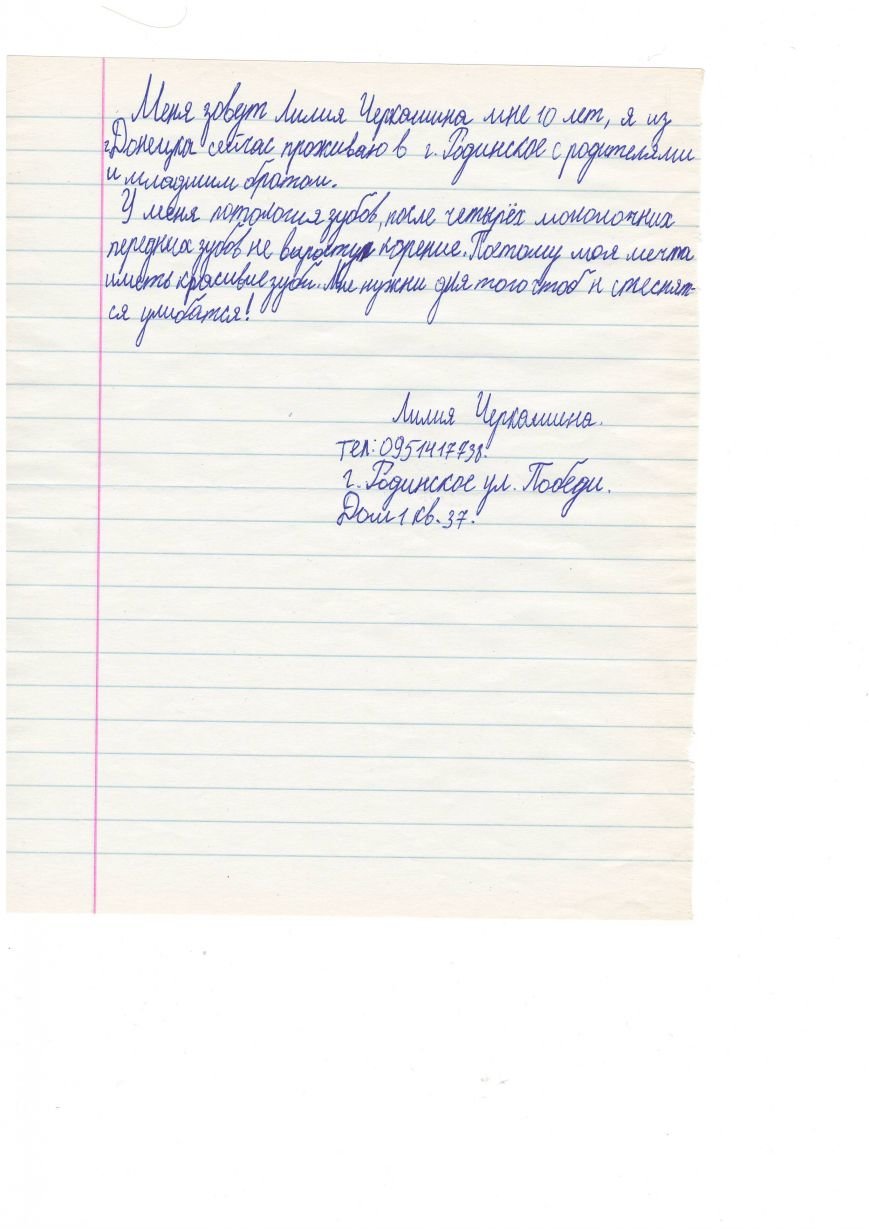 Меня зовут Лилия Черкашина мне 10 лет, я из
г.Донецка сейчас проживаю в г. Родинское с родителями
и младшим братом.
У меня потология зубов, после четырёх моколочних
передних зубов не вырастут корение. Поэтому моя мечта
иметь красивие зуби. Мне нужни для того чтоб н стеснят-
ся улибатся!
Лилия Черкашина.
тел: 0951417738.
г. Родинское ул. Победи.
Дом 1 кв. 37.